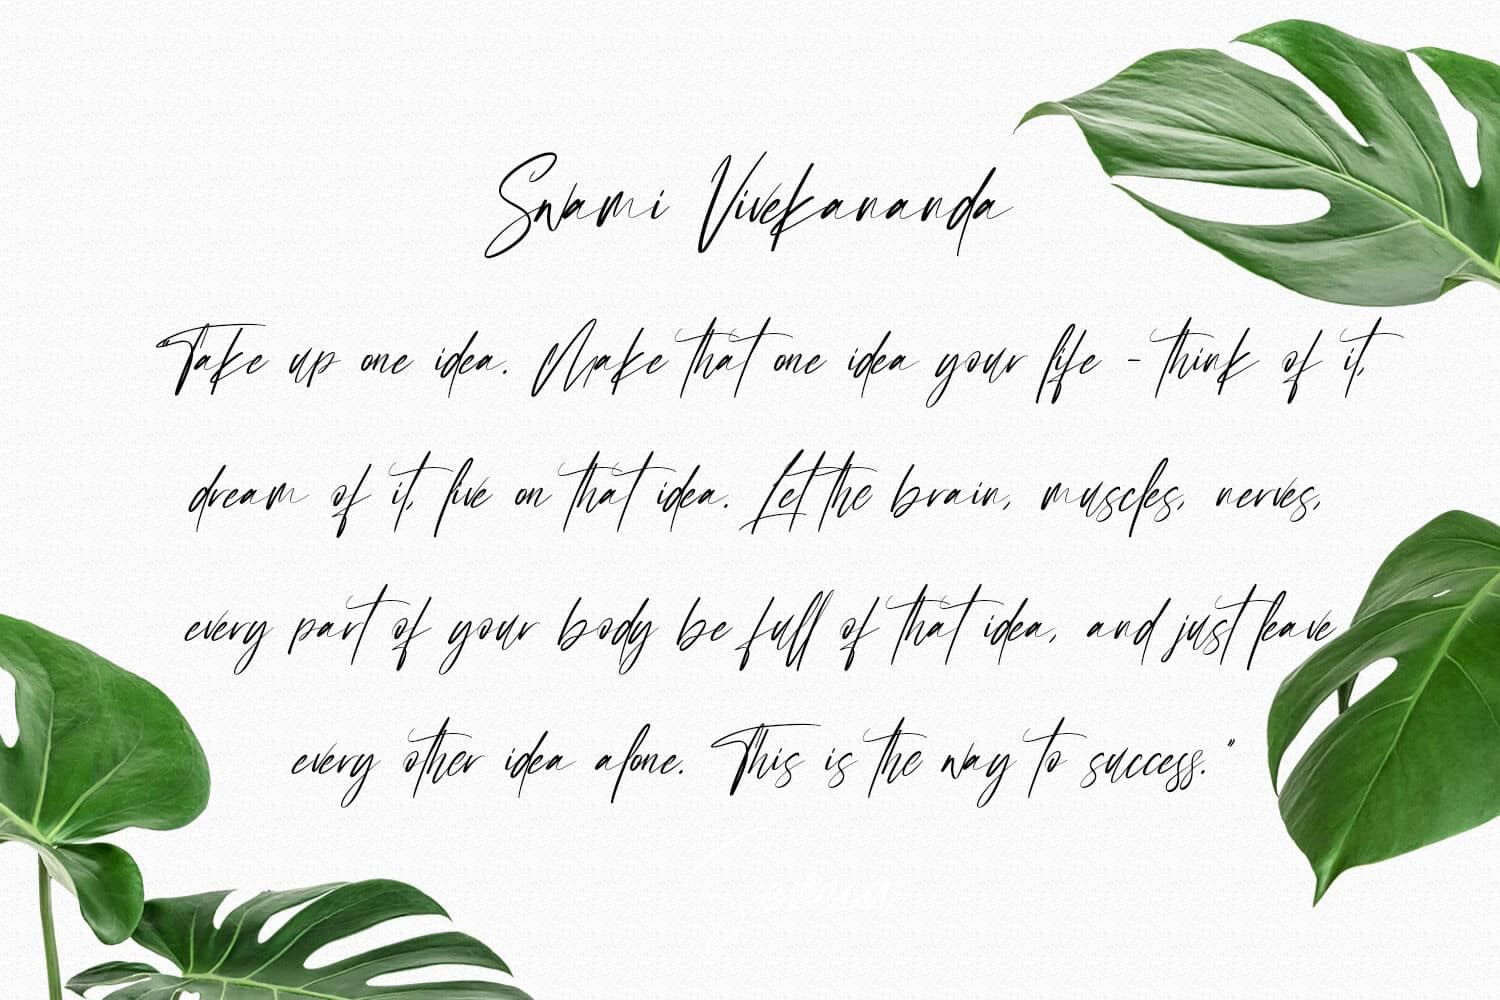 Swami Vivekananda
Take up one idea. Make that one idea your life - think of it,
dream of it, live on that idea. Let the brain, muscles, nerves,
every part of your body be full of that idea, and just leave
every other idea alone. This is the way to success."